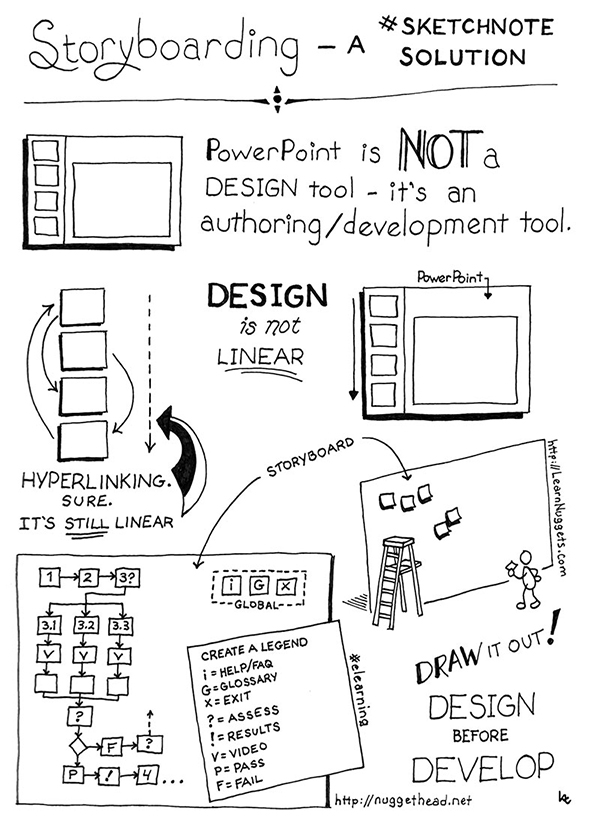 Storyboarding - A #SKETCHNOTE
SOLUTION
PowerPoint is NOT a
DESIGN tool - it's an
authoring/development tool.
DESIGN
is not
LINEAR
PowerPoint
HYPERLINKING.
SURE.
IT'S STILL LINEAR
STORYBOARD
http://LearnNuggets.com
1 2 3?
i G X
GLOBAL
3.1 3.2 3.3
V V V
?
F ?
P ! 4 ...
CREATE A LEGEND
i = HELP/FAQ
G = GLOSSARY
X = EXIT
? = ASSESS
! = RESULTS
V = VIDEO
P = PASS
F = FAIL
#elearning
DRAW IT OUT!
DESIGN
BEFORE
DEVELOP
http://nuggethead.net